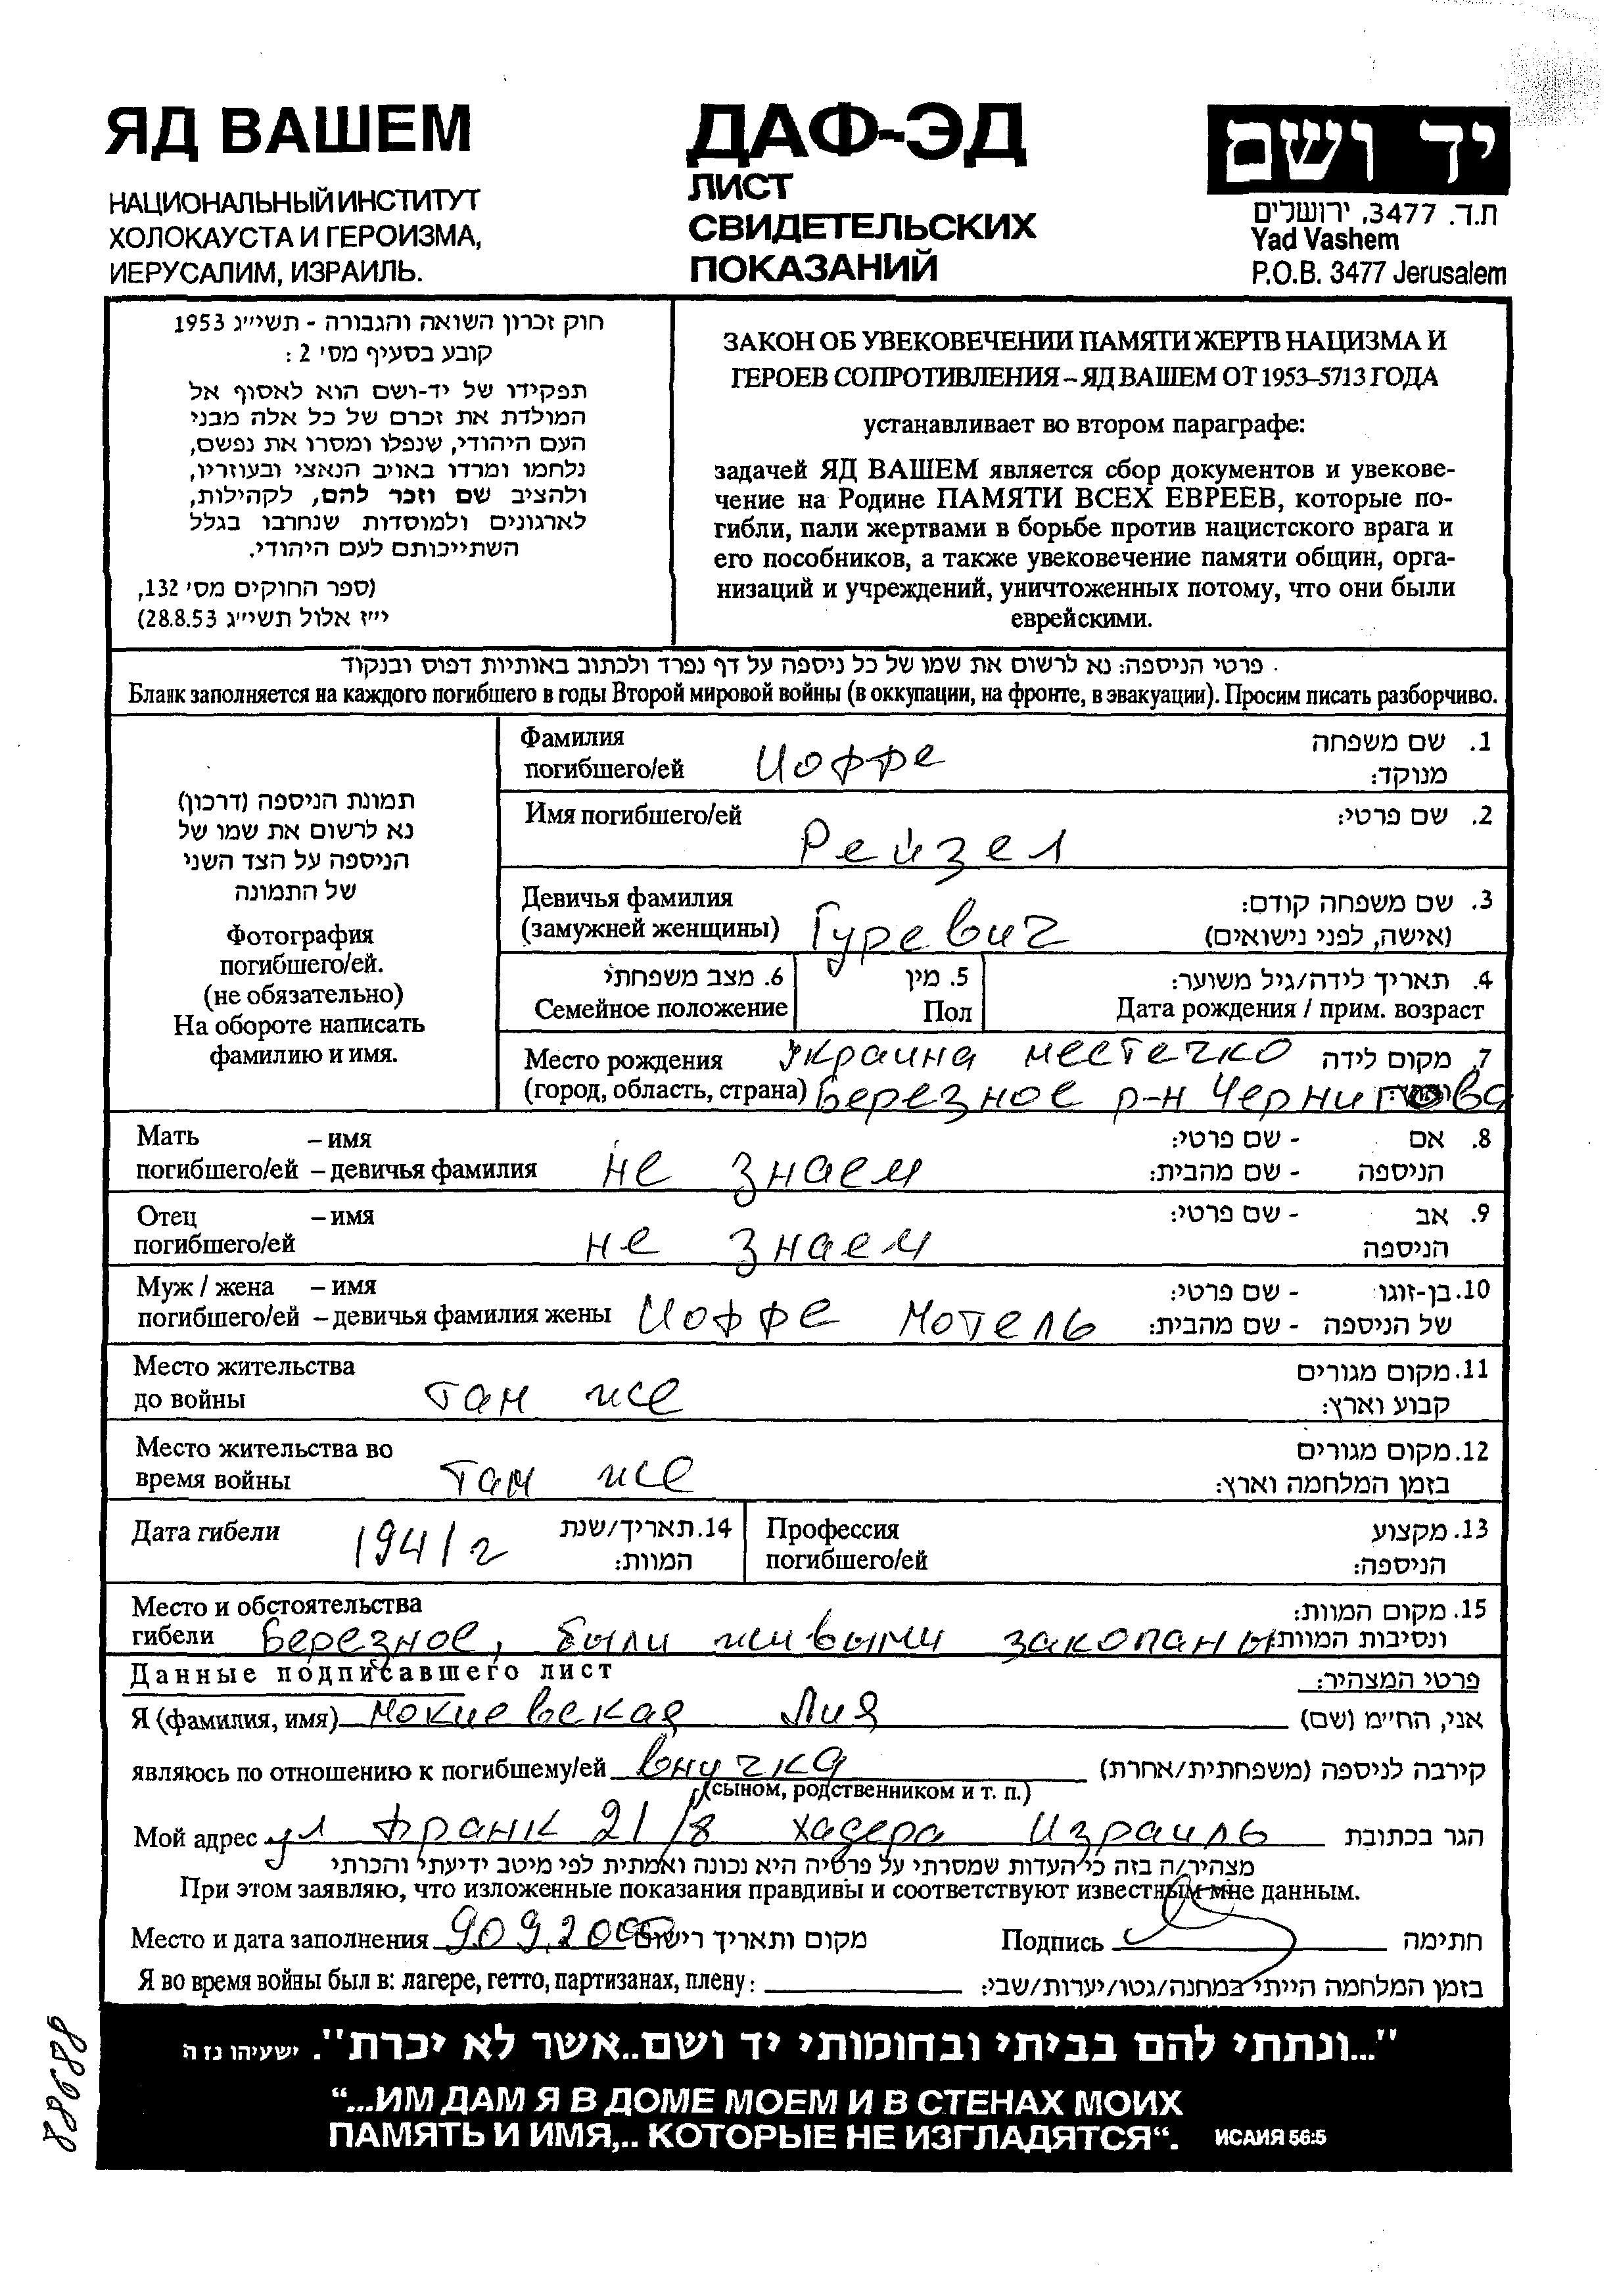 ЯД ВАШЕМ
НАЦИОНАЛЬНЫЙ ИНСТИТУТ
ХОЛОКАУСТА И ГЕРОИЗМА,
ИЕРУСАЛИМ, ИЗРАИЛЬ.
ДАФ-ЭД
ЛИСТ
СВИДЕТЕЛЬСКИХ
ПОКАЗАНИЙ
יד ושם
ת.ד. 3477, ירושלים
Yad Vashem
P.O.B. 3477 Jerusalem
חוק זכרון השואה והגבורה - תשי״ג 1953
קובע בסעיף מס׳ 2 :
תפקידו של יד-ושם הוא לאסוף אל
המולדת את זכרם של כל אלה מבני
העם היהודי, שנפלו ומסרו את נפשם,
נלחמו ומרדו באויב הנאצי ובעוזריו,
ולהציב שם וזכר להם, לקהילות,
לארגונים ולמוסדות שנחרבו בגלל
השתייכותם לעם היהודי.
(ספר החוקים מס׳ 132,
י״ז אלול תשי״ג 28.8.53)
ЗАКОН ОБ УВЕКОВЕЧЕНИИ ПАМЯТИ ЖЕРТВ НАЦИЗМА И
ГЕРОЕВ СОПРОТИВЛЕНИЯ – ЯД ВАШЕМ ОТ 1953–5713 ГОДА
устанавливает во втором параграфе:
задачей ЯД ВАШЕМ является сбор документов и увекове-
чение на Родине ПАМЯТИ ВСЕХ ЕВРЕЕВ, которые по-
гибли, пали жертвами в борьбе против нацистского врага и
его пособников, а также увековечение памяти общин, орга-
низаций и учреждений, уничтоженных потому, что они были
еврейскими.
פרטי הניספה: נא לרשום את שמו של כל ניספה על דף נפרד ולכתוב באותיות דפוס ובנקוד
Бланк заполняется на каждого погибшего в годы Второй мировой войны (в оккупации, на фронте, в эвакуации). Просим писать разборчиво.
תמונת הניספה (דרכון)
נא לרשום את שמו של
הניספה על הצד השני
של התמונה
Фотография
погибшего/ей.
(не обязательно)
На обороте написать
фамилию и имя.
Фамилия
погибшего/ей Иоффе
1. שם משפחה
מנוקד:
Имя погибшего/ей Рейзел
2. שם פרטי:
Девичья фамилия
(замужней женщины) Гуревич
3. שם משפחה קודם:
(אישה, לפני נישואים)
6. מצב משפחתי
Семейное положение
5. מין
Пол
4. תאריך לידה/גיל משוער:
Дата рождения / прим. возраст
Место рождения Украина местечко
7. מקום לידה
(город, область, страна) Березное р-н Чернигова
Мать – имя
погибшего/ей – девичья фамилия не знаем
8. אם - שם פרטי:
הניספה - שם מהבית:
Отец – имя
погибшего/ей не знаем
9. אב - שם פרטי:
הניספה
Муж / жена – имя
погибшего/ей – девичья фамилия жены Иоффе Мотель
10. בן-זוגו - שם פרטי:
של הניספה - שם מהבית:
Место жительства
до войны там же
11. מקום מגורים
קבוע וארץ:
Место жительства во
время войны там же
12. מקום מגורים
בזמן המלחמה וארץ:
Дата гибели 1941 г
14. תאריך/שנת
המוות:
Профессия
погибшего/ей
13. מקצוע
הניספה:
Место и обстоятельства
гибели Березное, были живыми закопаны
15. מקום המוות:
ונסיבות המוות:
Данные подписавшего лист
פרטי המצהיר:
Я (фамилия, имя) Мокиевская Лия אני, הח״מ (שם)
являюсь по отношению к погибшему/ей внучка קירבה לניספה (משפחתית/אחרת)
(сыном, родственником и т. п.)
Мой адрес ул Франк 21/8 Хадера Израиль הגר בכתובת
מצהיר/ה בזה כי העדות שמסרתי על פרטיה היא נכונה ואמתית לפי מיטב ידיעתי והכרתי
При этом заявляю, что изложенные показания правдивы и соответствуют известным мне данным.
Место и дата заполнения 9.09.2000 מקום ותאריך רישום Подпись חתימה
Я во время войны был в: лагере, гетто, партизанах, плену: בזמן המלחמה הייתי במחנה/גטו/יערות/שבי:
"...ונתתי להם בביתי ובחומותי יד ושם..אשר לא יכרת". ישעיהו נז ה
“...ИМ ДАМ Я В ДОМЕ МОЕМ И В СТЕНАХ МОИХ
ПАМЯТЬ И ИМЯ,.. КОТОРЫЕ НЕ ИЗГЛАДЯТСЯ“. ИСАИЯ 56:5
88688